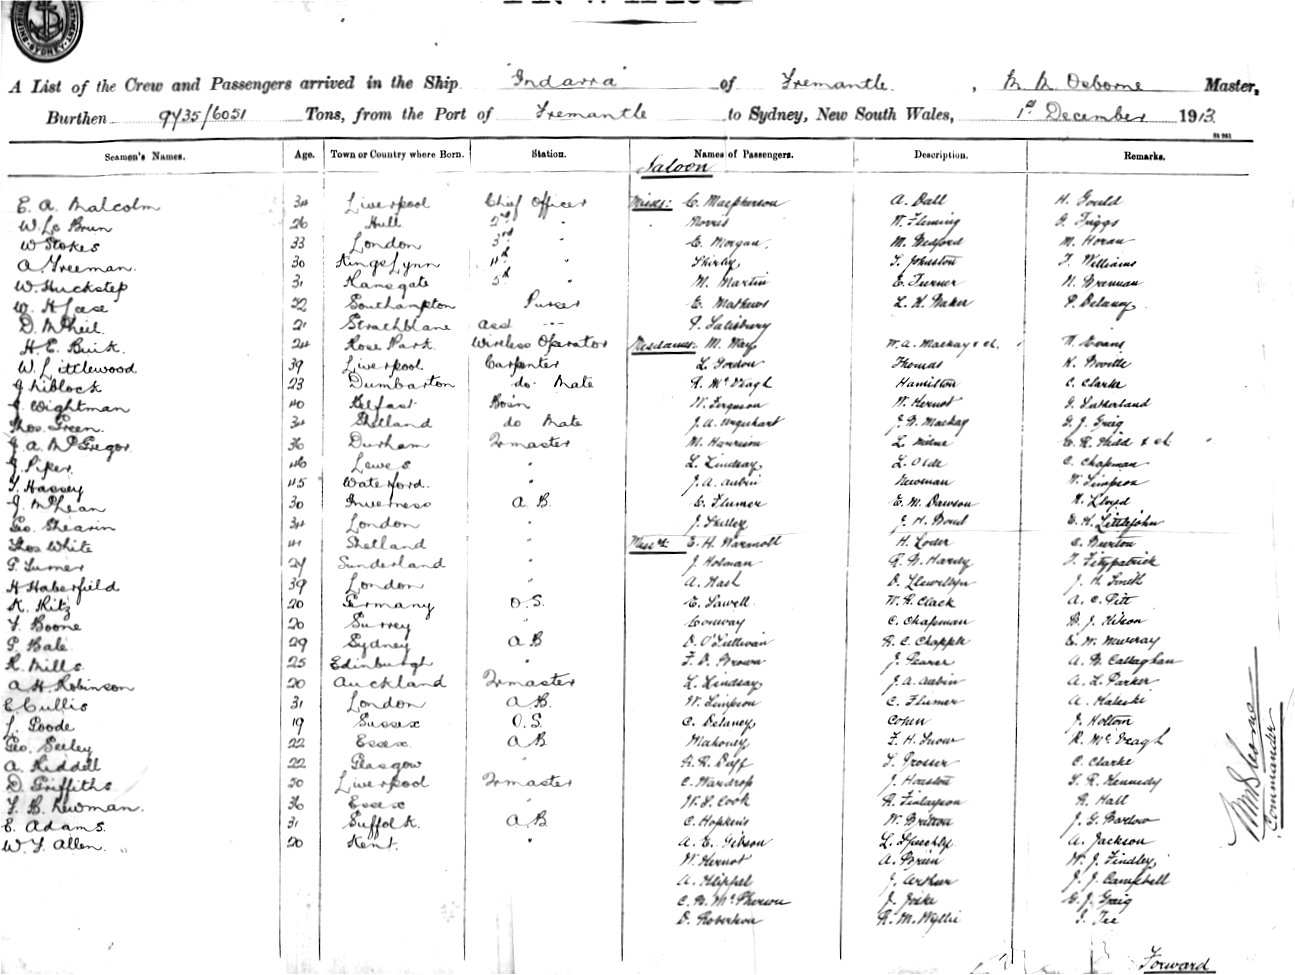 SYDNEY
A List of the Crew and Passengers arrived in the Ship "Indarra" of Fremantle, Osborne Master,
Burthen 9735/6051 Tons, from the Port of Fremantle to Sydney, New South Wales, 1st December 1913
Seamen's Names. Age. Town or Country where Born. Station. Names of Passengers. Description. Remarks.
Saloon
E. A. Malcolm 34 Liverpool Chief Officer Misses: C. Macpherson A. Ball H. Gould
W. Le Brun 26 Hull 2nd " Norris W. Fleming G. Friggs
W Stokes 33 London 3rd " E. Morgan M. Bedford M. Horan
A. Freeman 30 Kings Lynn 4th " Shirley J. Johnston T. Williams
W. Huckstep 31 Ramsgate 5th " M. Martin E. Turner H. Brennan
W. H. Case 22 Southampton Purser E. Mathews L. H. Baker P. Delaney
D. McPheil 21 Strathblane asst P. Salisbury
H. E. Buik 24 Rose Park Wireless Operator Mesdames: M. Way W. A. Mackay & ch. Evans
W. Littlewood 39 Liverpool Carpenter L. Gordon Thomas K. Neville
J Niblock 23 Dumbarton do Mate R. McVeagh Hamilton C. Clarke
J. Wightman 40 Belfast Bosn W. Ferguson W. Hernot G. Sutherland
Thos. Green 34 Shetland do Mate J. A. Urquhart J. B. Mackay G. J. Greig
J. A. McGregor 36 Durham Qrmaster M. Harrison L. Milne & ch
J. Piper 46 Lewes " L. Lindsay L. Olde C. Chapman
T. Hassey 45 Waterford " J. A. Aubin Newman W. Simpson
J. McLean 30 Inverness A. B. C. Flumer E. M. Dawson H. Lloyd
Geo. Shearin 34 London " J. Skilley J. H. Bond E. H. Littlejohn
Thos White 41 Shetland " Messrs: E. H. Warmoll H. Loder C. Burton
P. Turner 27 Sunderland " J. Holman R. W. Hardy T. Fitzpatrick
H Haberfield 39 London " A. Nash D. Llewellyn J. H. Smith
K. Kitz 20 Germany O. S. E. Sawell W. R. Clack A. C. Pitt
F. Boone 20 Surrey " Conway C. Chapman B. J. Hilson
P. Bale 29 Sydney A B D. O'Sullivan R. C. Chapple E. W. Murray
R. Mills 25 Edinburgh " F. D. Brown J. Pearce A. B. Callaghan
A. H. Robinson 20 Auckland Qrmaster L. Lindsay J. A. Aubin A. L. Parker
E Cullis 31 London A B. W. Simpson C. Flumer A. Haleski
L. Goode 19 Sussex O. S. C. Delaney Cohen J. Holtom
Geo. Seeley 22 Essex A B Mahoney F. H. Snow R. McVeagh
A. Riddell 22 Glasgow R. Duff S. Prosser C. Clarke
D. Griffiths 50 Liverpool Qrmaster C. Wardrop J. Houston S. R. Kennedy
F. B. Newman. 36 Essex " W. S. Cook R. Finlayson R. Hall
E. Adams. 31 Suffolk A B C. Hopkins W. Britton J. G. Barlow
W. F. Allen 20 Kent " A. E. Gibson L. Speechly A. Jackson
W. Hernot A. Brien W. J. Findley
A. Klippel J. Arthur J. J. Campbell
C. B. McPherson J. Joske G. J. Greig
D. Robertson R. M. Wyllie J. Tee
Commander
Forward